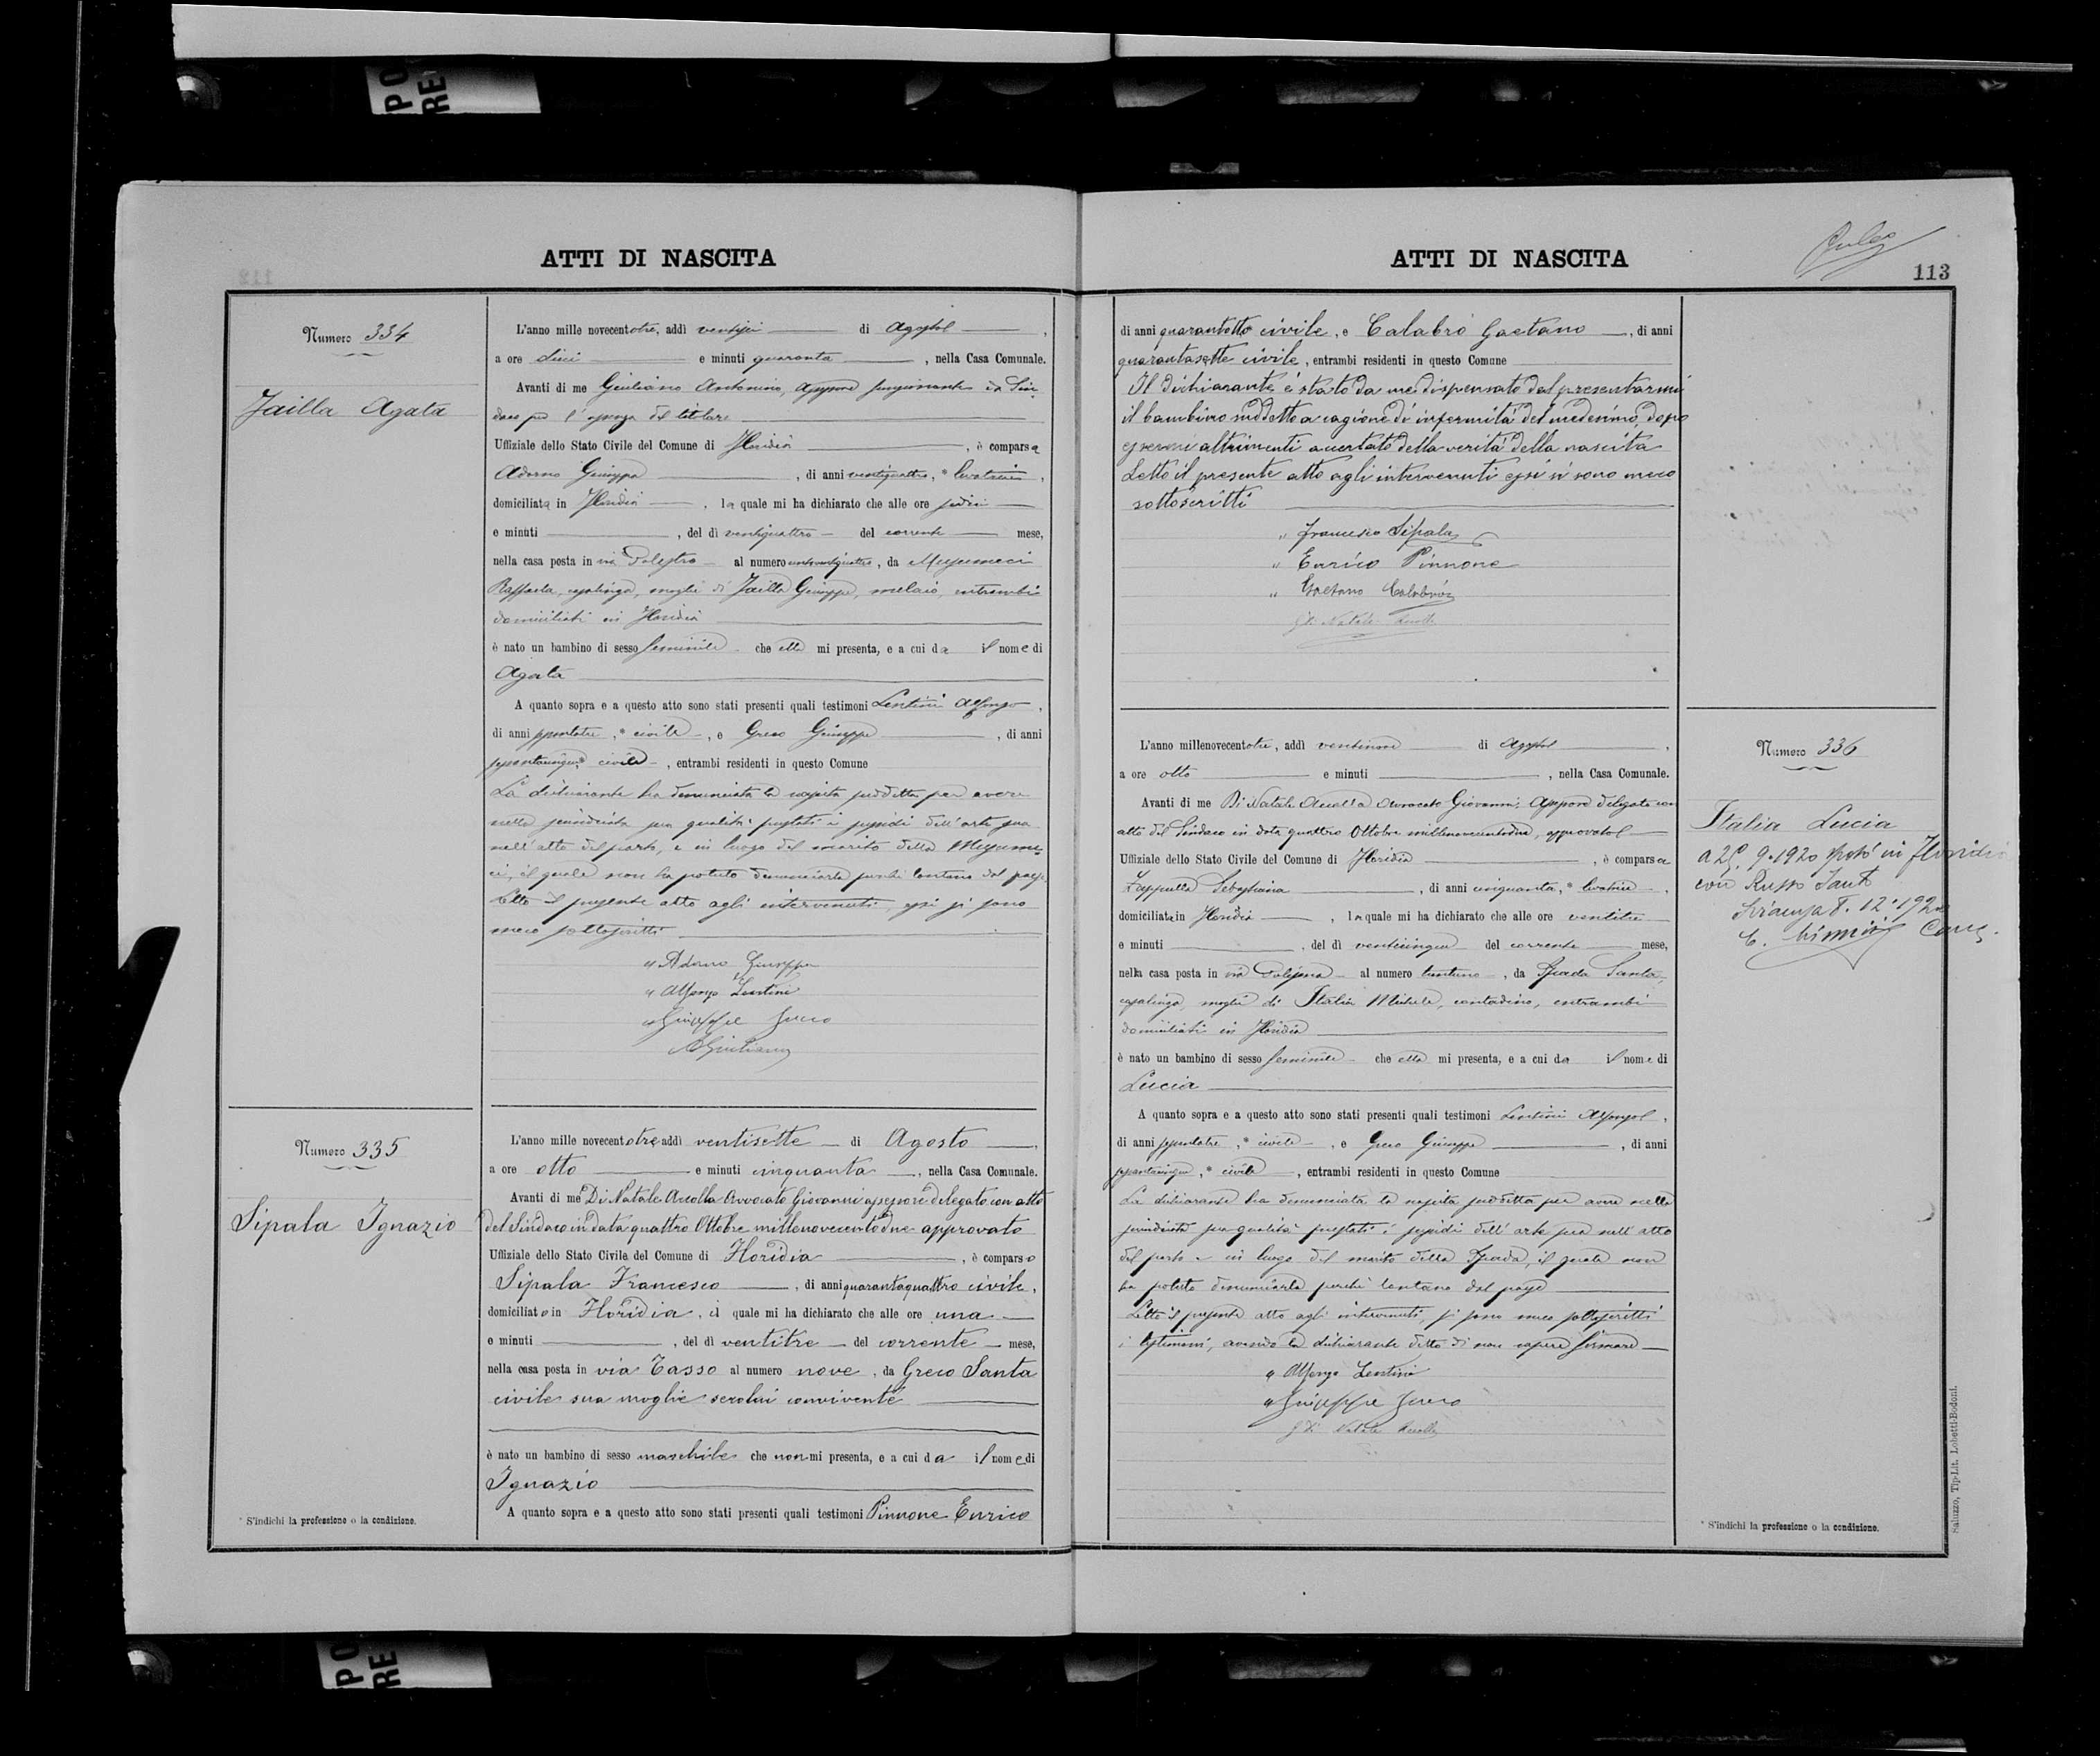 ATTI DI NASCITA
Numero 334
Jailla Agata
L'anno mille novecentotre, addì ventisei di Agosto,
a ore dieci e minuti quaranta, nella Casa Comunale.
Avanti di me Giuliano Antonino, Assessore funzionante da Sin-
daco per l'assenza del titolare
Uffiziale dello Stato Civile del Comune di Floridia, è comparsa
Adorno Giuseppa, di anni ventiquattro, * levatrice,
domiciliata in Floridia, la quale mi ha dichiarato che alle ore
e minuti, del dì ventiquattro del corrente mese,
nella casa posta in via Palestro al numero, da Musumeci
Raffaela, casalinga, moglie di Jailla Giuseppe, entrambi
domiciliati in Floridia
è nato un bambino di sesso feminile che ella mi presenta, e a cui da il nome di
Agata
A quanto sopra e a questo atto sono stati presenti quali testimoni Lentini Alfonso,
di anni sessantatre, * civile, e Greco Giuseppe, di anni
sessantacinque * civile, entrambi residenti in questo Comune
La dichiarante ha denunciata la nascita suddetta per avere
nella qualità prestati i sussidi dell'arte sua
nell'atto del parto, e in luogo del marito della Musume-
ci, il quale non ha potuto denunciarla perchè lontano dal paese
Letto il presente atto agli intervenuti, essi si sono
meco sottoscritti
" Adorno Giuseppa
" Alfonso Lentini
" Giuseppe Greco
A Giuliano
Numero 335
Sipala Ignazio
L'anno mille novecentotre, addì ventisette di Agosto,
a ore otto e minuti cinquanta, nella Casa Comunale.
Avanti di me Di Natale Avolla Avvocato Giovanni assessore delegato con atto
del Sindaco in data quattro Ottobre millenovecentodue approvato
Uffiziale dello Stato Civile del Comune di Floridia, è comparso
Sipala Francesco, di anni quarantaquattro civile,
domiciliato in Floridia, il quale mi ha dichiarato che alle ore una
e minuti, del dì ventitre del corrente mese,
nella casa posta in via Tasso al numero nove, da Greco Santa
civile sua moglie seco lui convivente
è nato un bambino di sesso maschile che non mi presenta, e a cui da il nome di
Ignazio
A quanto sopra e a questo atto sono stati presenti quali testimoni Pinnone Enrico
* S'indichi la professione o la condizione.
ATTI DI NASCITA
113
di anni quarantotto civile, e Calabrò Gaetano, di anni
quarantasette civile, entrambi residenti in questo Comune
Il dichiarante è stato da me dispensato dal presentarmi
il bambino suddetto a cagione di infermità del medesimo, dopo
essermi altrimenti accertato della verità della nascita
Letto il presente atto agli intervenuti essi si sono meco
sottoscritti
" Francesco Sipala
" Enrico Pinnone
" Gaetano Calabrò
G Di Natale Avolla
Numero 336
Italia Lucia
a 25. 9. 1920 sposò in Floridia
con Russo Santo
Siracusa 8. 12. 192
L'anno millenovecentotre, addì ventinove di Agosto,
a ore otto e minuti, nella Casa Comunale.
Avanti di me Di Natale Avolla Avvocato Giovanni, Assessore delegato con
atto del Sindaco in data quattro Ottobre millenovecentodue, approvato
Uffiziale dello Stato Civile del Comune di Floridia, è comparsa
Zappulla Sebastiana, di anni cinquanta, * levatrice,
domiciliata in Floridia, la quale mi ha dichiarato che alle ore ventitre
e minuti, del dì venticinque del corrente mese,
nella casa posta in via al numero trentuno, da Spada Santa,
casalinga, moglie di Italia Michele, contadino, entrambi
domiciliati in Floridia
è nato un bambino di sesso feminile che ella mi presenta, e a cui da il nome di
Lucia
A quanto sopra e a questo atto sono stati presenti quali testimoni Lentini Alfonso,
di anni sessantatre, * civile, e Greco Giuseppe, di anni
sessantacinque, * civile, entrambi residenti in questo Comune
La dichiarante ha denunciata la nascita suddetta per avere nella
qualità prestati i sussidi dell'arte sua nell'atto
del parto e in luogo del marito della Spada, il quale non
ha potuto denunciarla perchè lontano dal paese
Letto il presente atto agli intervenuti, si sono meco sottoscritti
i testimoni, avendo la dichiarante detto di non sapere firmare
" Alfonso Lentini
" Giuseppe Greco
G Di Natale Avolla
* S'indichi la professione o la condizione.
Saluzzo, Tip-Lit. Lobetti-Bodoni.